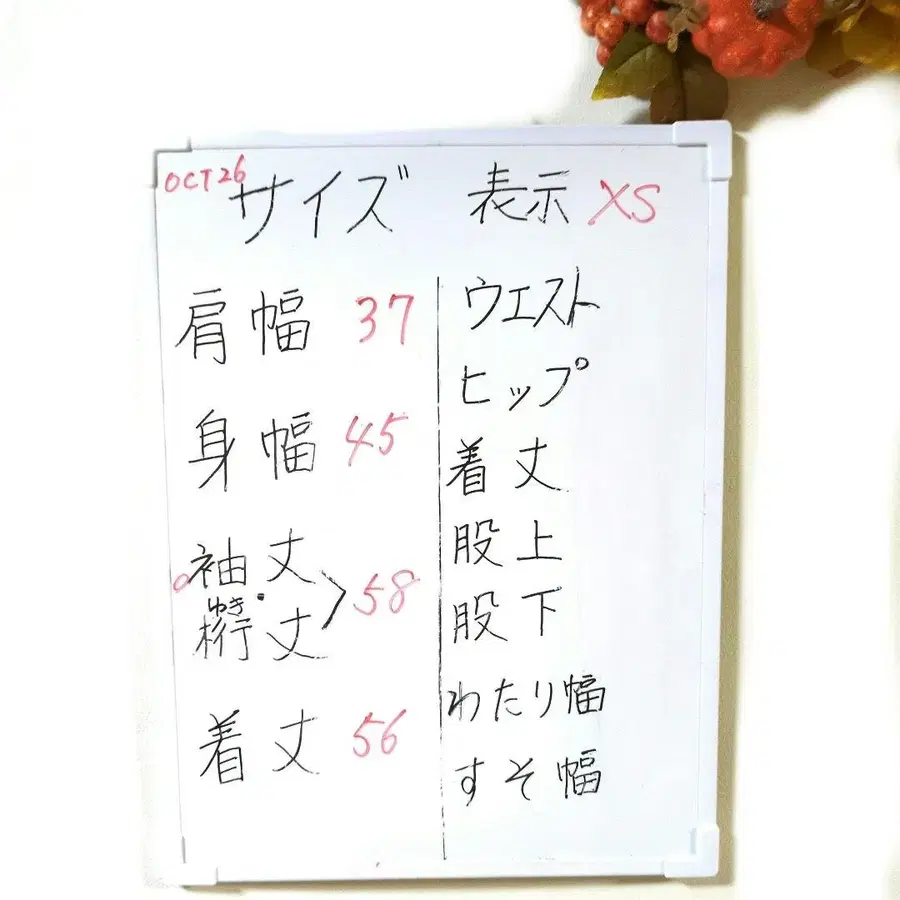 OCT26
サイズ 表示 XS
肩幅 37
身幅 45
袖丈
ゆき
裄丈
58
着丈 56
ウエスト
ヒップ
着丈
股上
股下
わたり幅
すそ幅